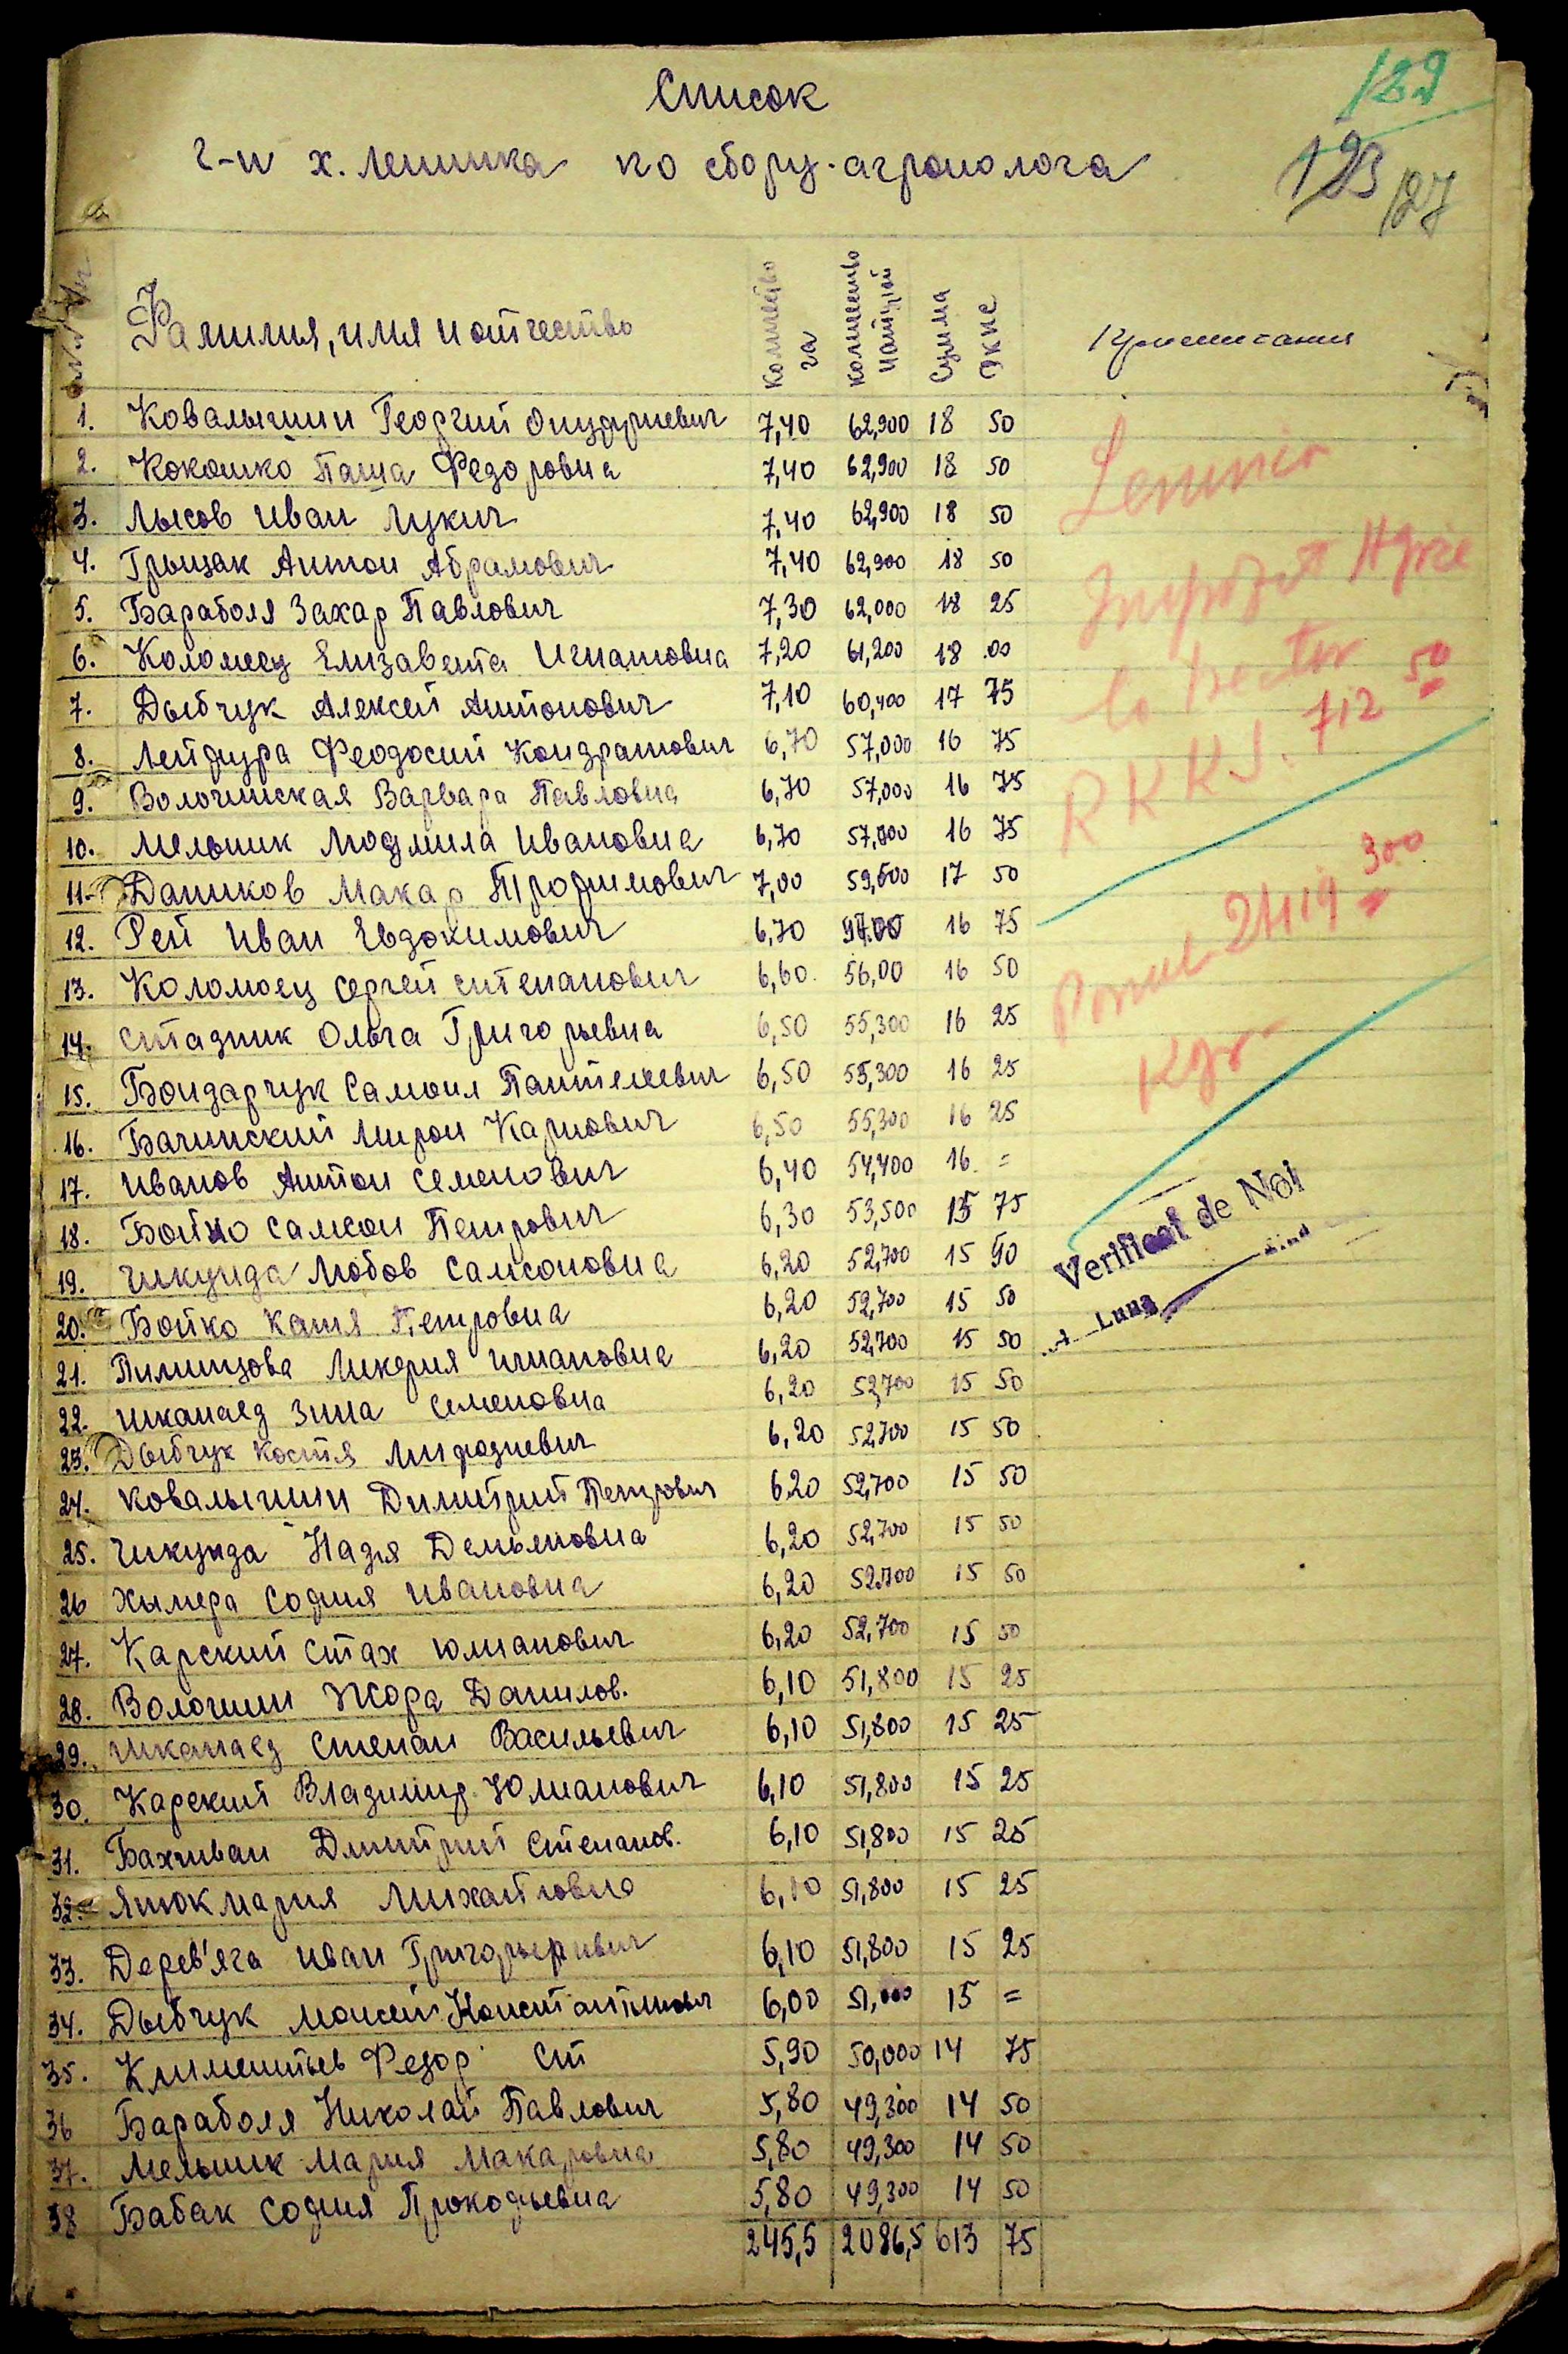 Список
г-н х. Ленинка по сбору агроналога
122
123
127
Фамилия, имя и отчество
Количество га
количество натурой
Сумма
экпс
Примечания
1. Ковалышин Георгий 7,40 62,900 18 50
2. Кокошко Паша Федоровна 7,40 62,900 18 50
3. Лысов Иван Лукич 7,40 62,900 18 50
4. Грыцак Антон Абрамович 7,40 62,900 18 50
5. Бараболя Захар Павлович 7,30 62,000 18 25
6. Коломеец Елизавета Игнатовна 7,20 61,200 18 00
7. Дыбчук Алексей Антонович 7,10 60,400 17 75
8. Лейдура Феодосий Кондратович 6,70 57,000 16 75
9. Волочинская Варвара Павловна 6,70 57,000 16 75
10. Мельник Людмила Ивановна 6,70 57,000 16 75
11. Даников Макар Трофимович 7,00 59,500 17 50
12. Рей Иван Евдокимович 6,70 16 75
13. Коломоец Сергей Степанович 6,60 56,00 16 50
14. Стадник Ольга Григорьевна 6,50 55,300 16 25
15. Бондарчук Самоил Пантелеевич 6,50 55,300 16 25
16. Бачинский Мирон Карпович 6,50 55,300 16 25
17. Иванов Антон Семенович 6,40 54,400 16 =
18. Бойко Самсон Петрович 6,30 53,500 15 75
19. Чикунда Любов Самсоновна 6,20 52,700 15 50
20. Бойко Катя Петровна 6,20 52,700 15 50
21. Пилипцова Ликерия Игнатовна 6,20 52,700 15 50
22. Шкапаед Зина Семеновна 6,20 52,700 15 50
23. Дыбчук Костя Мифодиевич 6,20 52,700 15 50
24. Ковалышин Димитрий Петрович 6,20 52,700 15 50
25. Чикунда Надя Демьяновна 6,20 52,700 15 50
26 Химера София Ивановна 6,20 52,700 15 50
27. Карский Стах Юлианович 6,20 52,700 15 50
28. Волошин Жора Данилов. 6,10 51,800 15 25
29. Шкапаед Степан Васильевич 6,10 51,800 15 25
30. Карский Владимир Юлианович 6,10 51,800 15 25
31. Бахчиван Дмитрий Степанов. 6,10 51,800 15 25
32. Яток Мария Михайловна 6,10 51,800 15 25
33. Дерев'яга Иван Григорьевич 6,10 51,800 15 25
34. Дыбчук Моисей Константинович 6,00 51,000 15 =
35. Климентьев Федор Ст 5,90 50,000 14 75
36 Бараболя Николай Павлович 5,80 49,300 14 50
37. Мельник Мария Макаровна 5,80 49,300 14 50
38 Бабак София Прокофьевна 5,80 49,300 14 50
245,5 2086,5 613 75
Leninca
Impozit Agric
la hectar
RKKS. 712 50
Porumb 2419 300
Kgr
Verificat de Noi
Luna